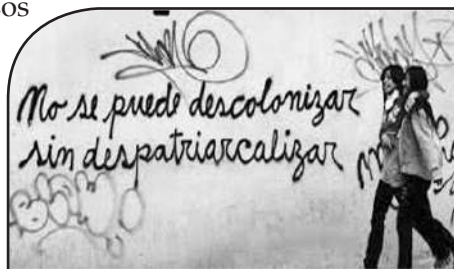 os
No se puede descolonizar
sin despatriarcalizar